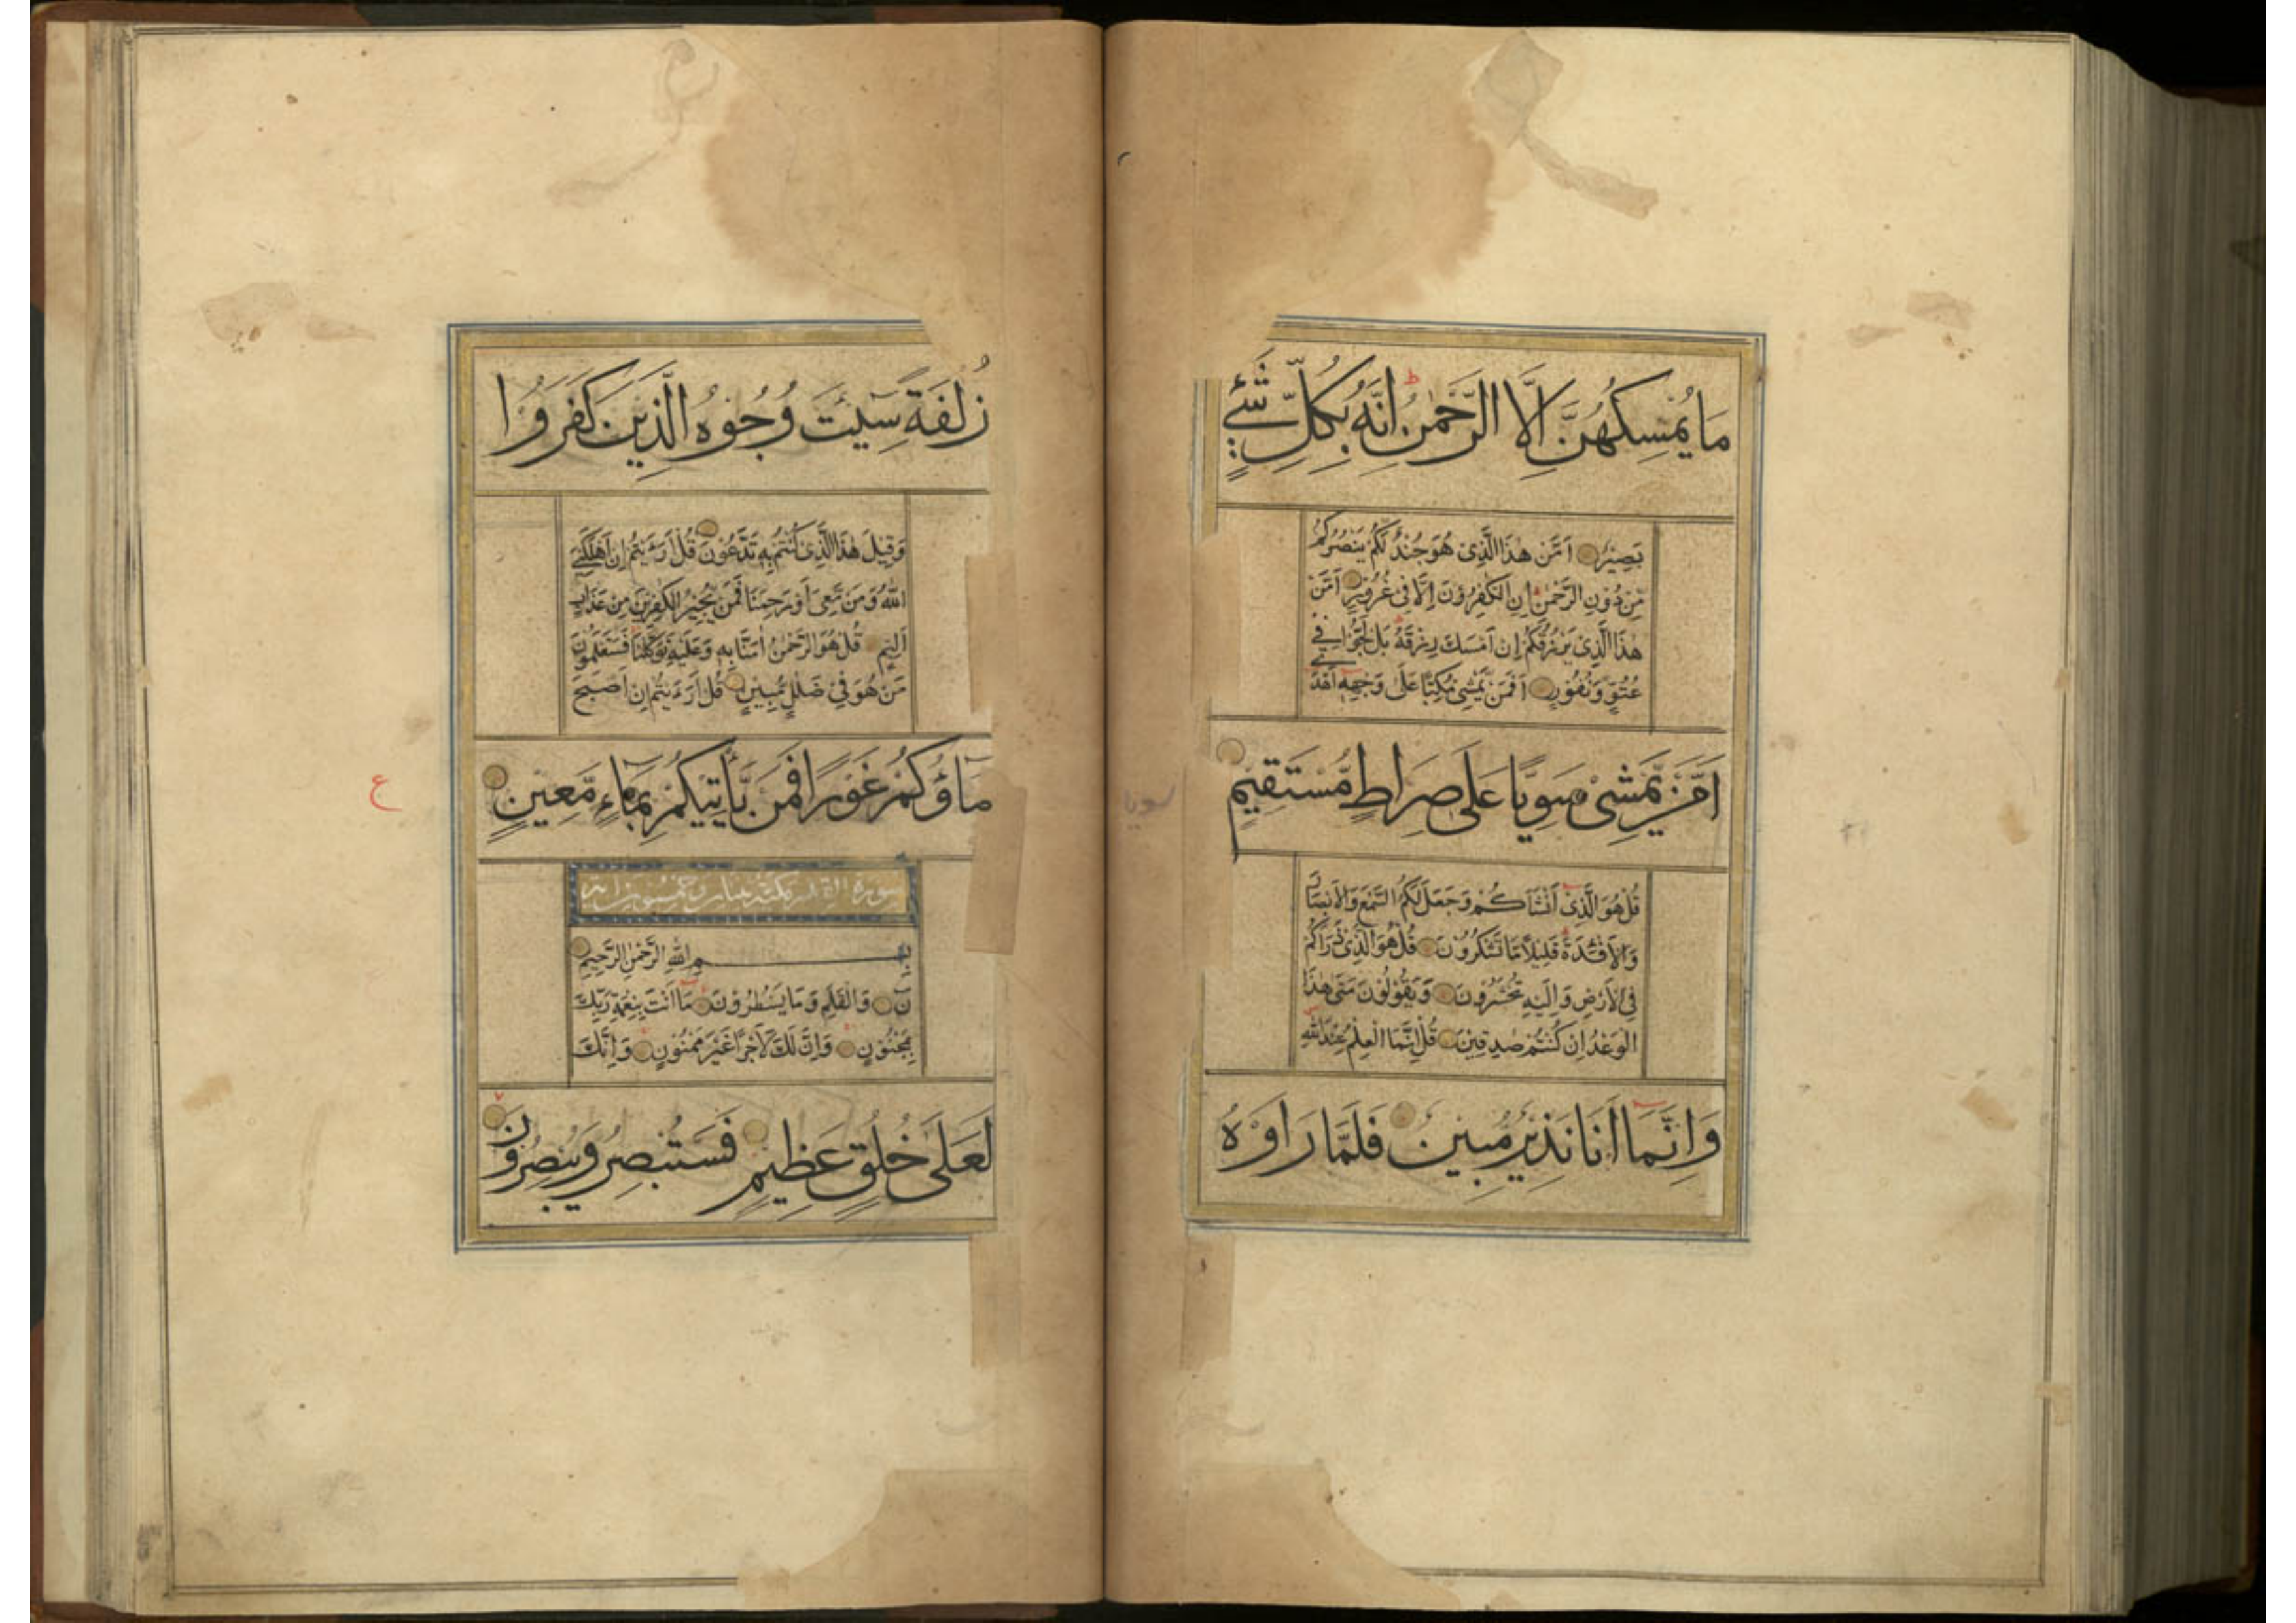 مَا يُمْسِكُهُنَّ اِلَّا الرَّحْمٰنُ اِنَّهُ بِكُلِّ شَيْءٍ
بَصِيْرٌ اَمَّنْ هٰذَا الَّذِىْ هُوَ جُنْدٌ لَّكُمْ يَنْصُرُكُمْ
مِّنْ دُوْنِ الرَّحْمٰنِ اِنِ الْكٰفِرُوْنَ اِلَّا فِىْ غُرُوْرٍ اَمَّنْ
هٰذَا الَّذِىْ يَرْزُقُكُمْ اِنْ اَمْسَكَ رِزْقَهُ بَلْ لَّجُّوْا فِيْ
عُتُوٍّ وَّنُفُوْرٍ اَفَمَنْ يَّمْشِىْ مُكِبًّا عَلٰى وَجْهِهٖ اَهْدٰى
اَمَّنْ يَّمْشِىْ سَوِيًّا عَلٰى صِرَاطٍ مُّسْتَقِيْمٍ
سويا
قُلْ هُوَ الَّذِىْ اَنْشَاَكُمْ وَجَعَلَ لَكُمُ السَّمْعَ وَالْاَبْصَارَ
وَالْاَفْئِدَةَ قَلِيْلًا مَّا تَشْكُرُوْنَ قُلْ هُوَ الَّذِىْ ذَرَاَكُمْ
فِى الْاَرْضِ وَاِلَيْهِ تُحْشَرُوْنَ وَيَقُوْلُوْنَ مَتٰى هٰذَا
الْوَعْدُ اِنْ كُنْتُمْ صٰدِقِيْنَ قُلْ اِنَّمَا الْعِلْمُ عِنْدَ اللّٰهِ
وَاِنَّمَا اَنَا نَذِيْرٌ مُّبِيْنٌ فَلَمَّا رَاَوْهُ
زُلْفَةً سِيْئَتْ وُجُوْهُ الَّذِيْنَ كَفَرُوْا
وَقِيْلَ هٰذَا الَّذِىْ كُنْتُمْ بِهٖ تَدَّعُوْنَ قُلْ اَرَءَيْتُمْ اِنْ اَهْلَكَنِيَ
اللّٰهُ وَمَنْ مَّعِىَ اَوْ رَحِمَنَا فَمَنْ يُّجِيْرُ الْكٰفِرِيْنَ مِنْ عَذَابٍ
اَلِيْمٍ قُلْ هُوَ الرَّحْمٰنُ اٰمَنَّا بِهٖ وَعَلَيْهِ تَوَكَّلْنَا فَسَتَعْلَمُوْنَ
مَنْ هُوَ فِىْ ضَلٰلٍ مُّبِيْنٍ قُلْ اَرَءَيْتُمْ اِنْ اَصْبَحَ
مَاؤُكُمْ غَوْرًا فَمَنْ يَّأْتِيْكُمْ بِمَاءٍ مَّعِيْنٍ
ع
سورة القلم مكية اثنان وخمسون اية
بِسْمِ اللّٰهِ الرَّحْمٰنِ الرَّحِيْمِ
نٓ وَالْقَلَمِ وَمَا يَسْطُرُوْنَ مَا اَنْتَ بِنِعْمَةِ رَبِّكَ
بِمَجْنُوْنٍ وَاِنَّ لَكَ لَاَجْرًا غَيْرَ مَمْنُوْنٍ وَاِنَّكَ
لَعَلٰى خُلُقٍ عَظِيْمٍ فَسَتُبْصِرُ وَيُبْصِرُوْنَ